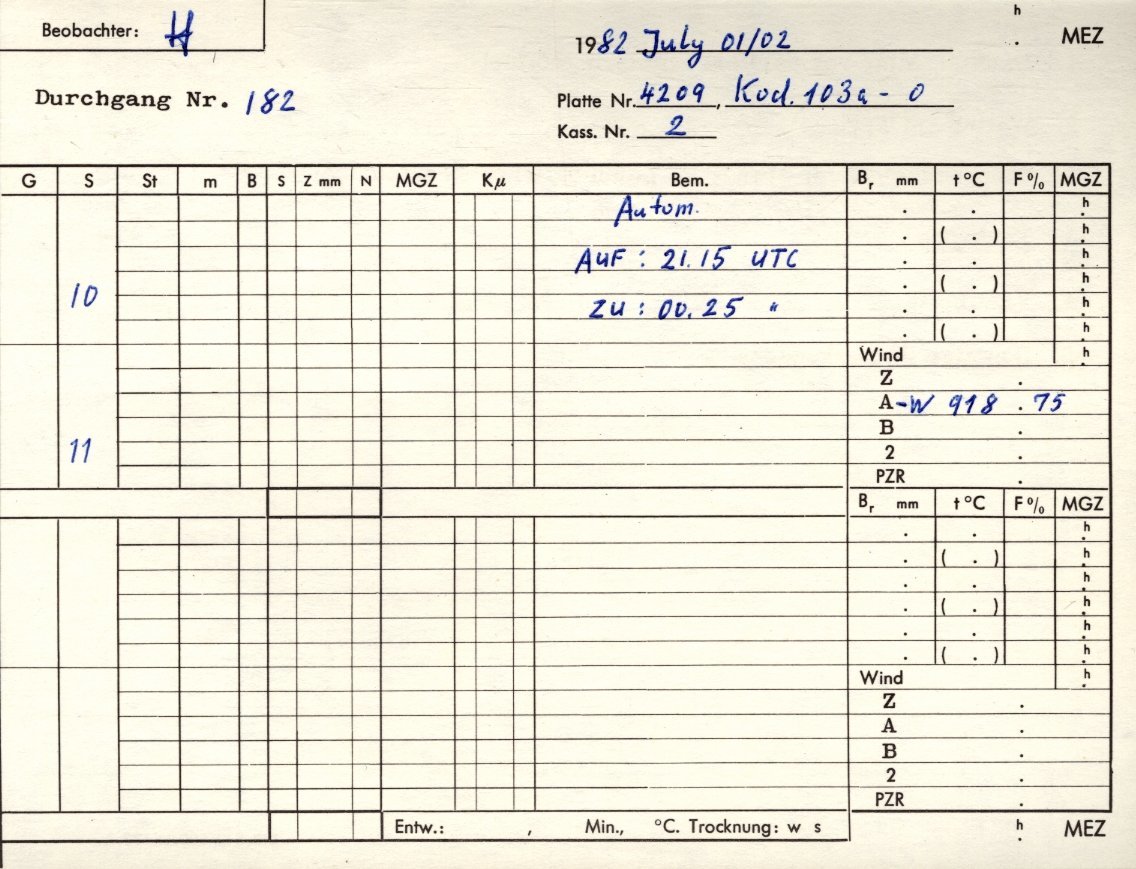 Beobachter: H
1982 July 01/02 h . MEZ
Durchgang Nr. 182
Platte Nr. 4209, Kod. 103a - O
Kass. Nr. 2
G S St m B S Z mm N MGZ Kμ Bem. Br mm t °C F % MGZ
Autom. . . h
. ( . ) h
AUF : 21.15 UTC . . h
10 . ( . ) h
ZU : 00.25 " . . h
. ( . ) h
Wind h
Z .
A-W 918 . 75
11 B .
2 .
PZR .
Br mm t °C F % MGZ
. . h
. ( . ) h
. . h
. ( . ) h
. . h
. ( . ) h
Wind h
Z .
A .
B .
2 .
PZR .
Entw.: , Min., °C. Trocknung: w s h . MEZ